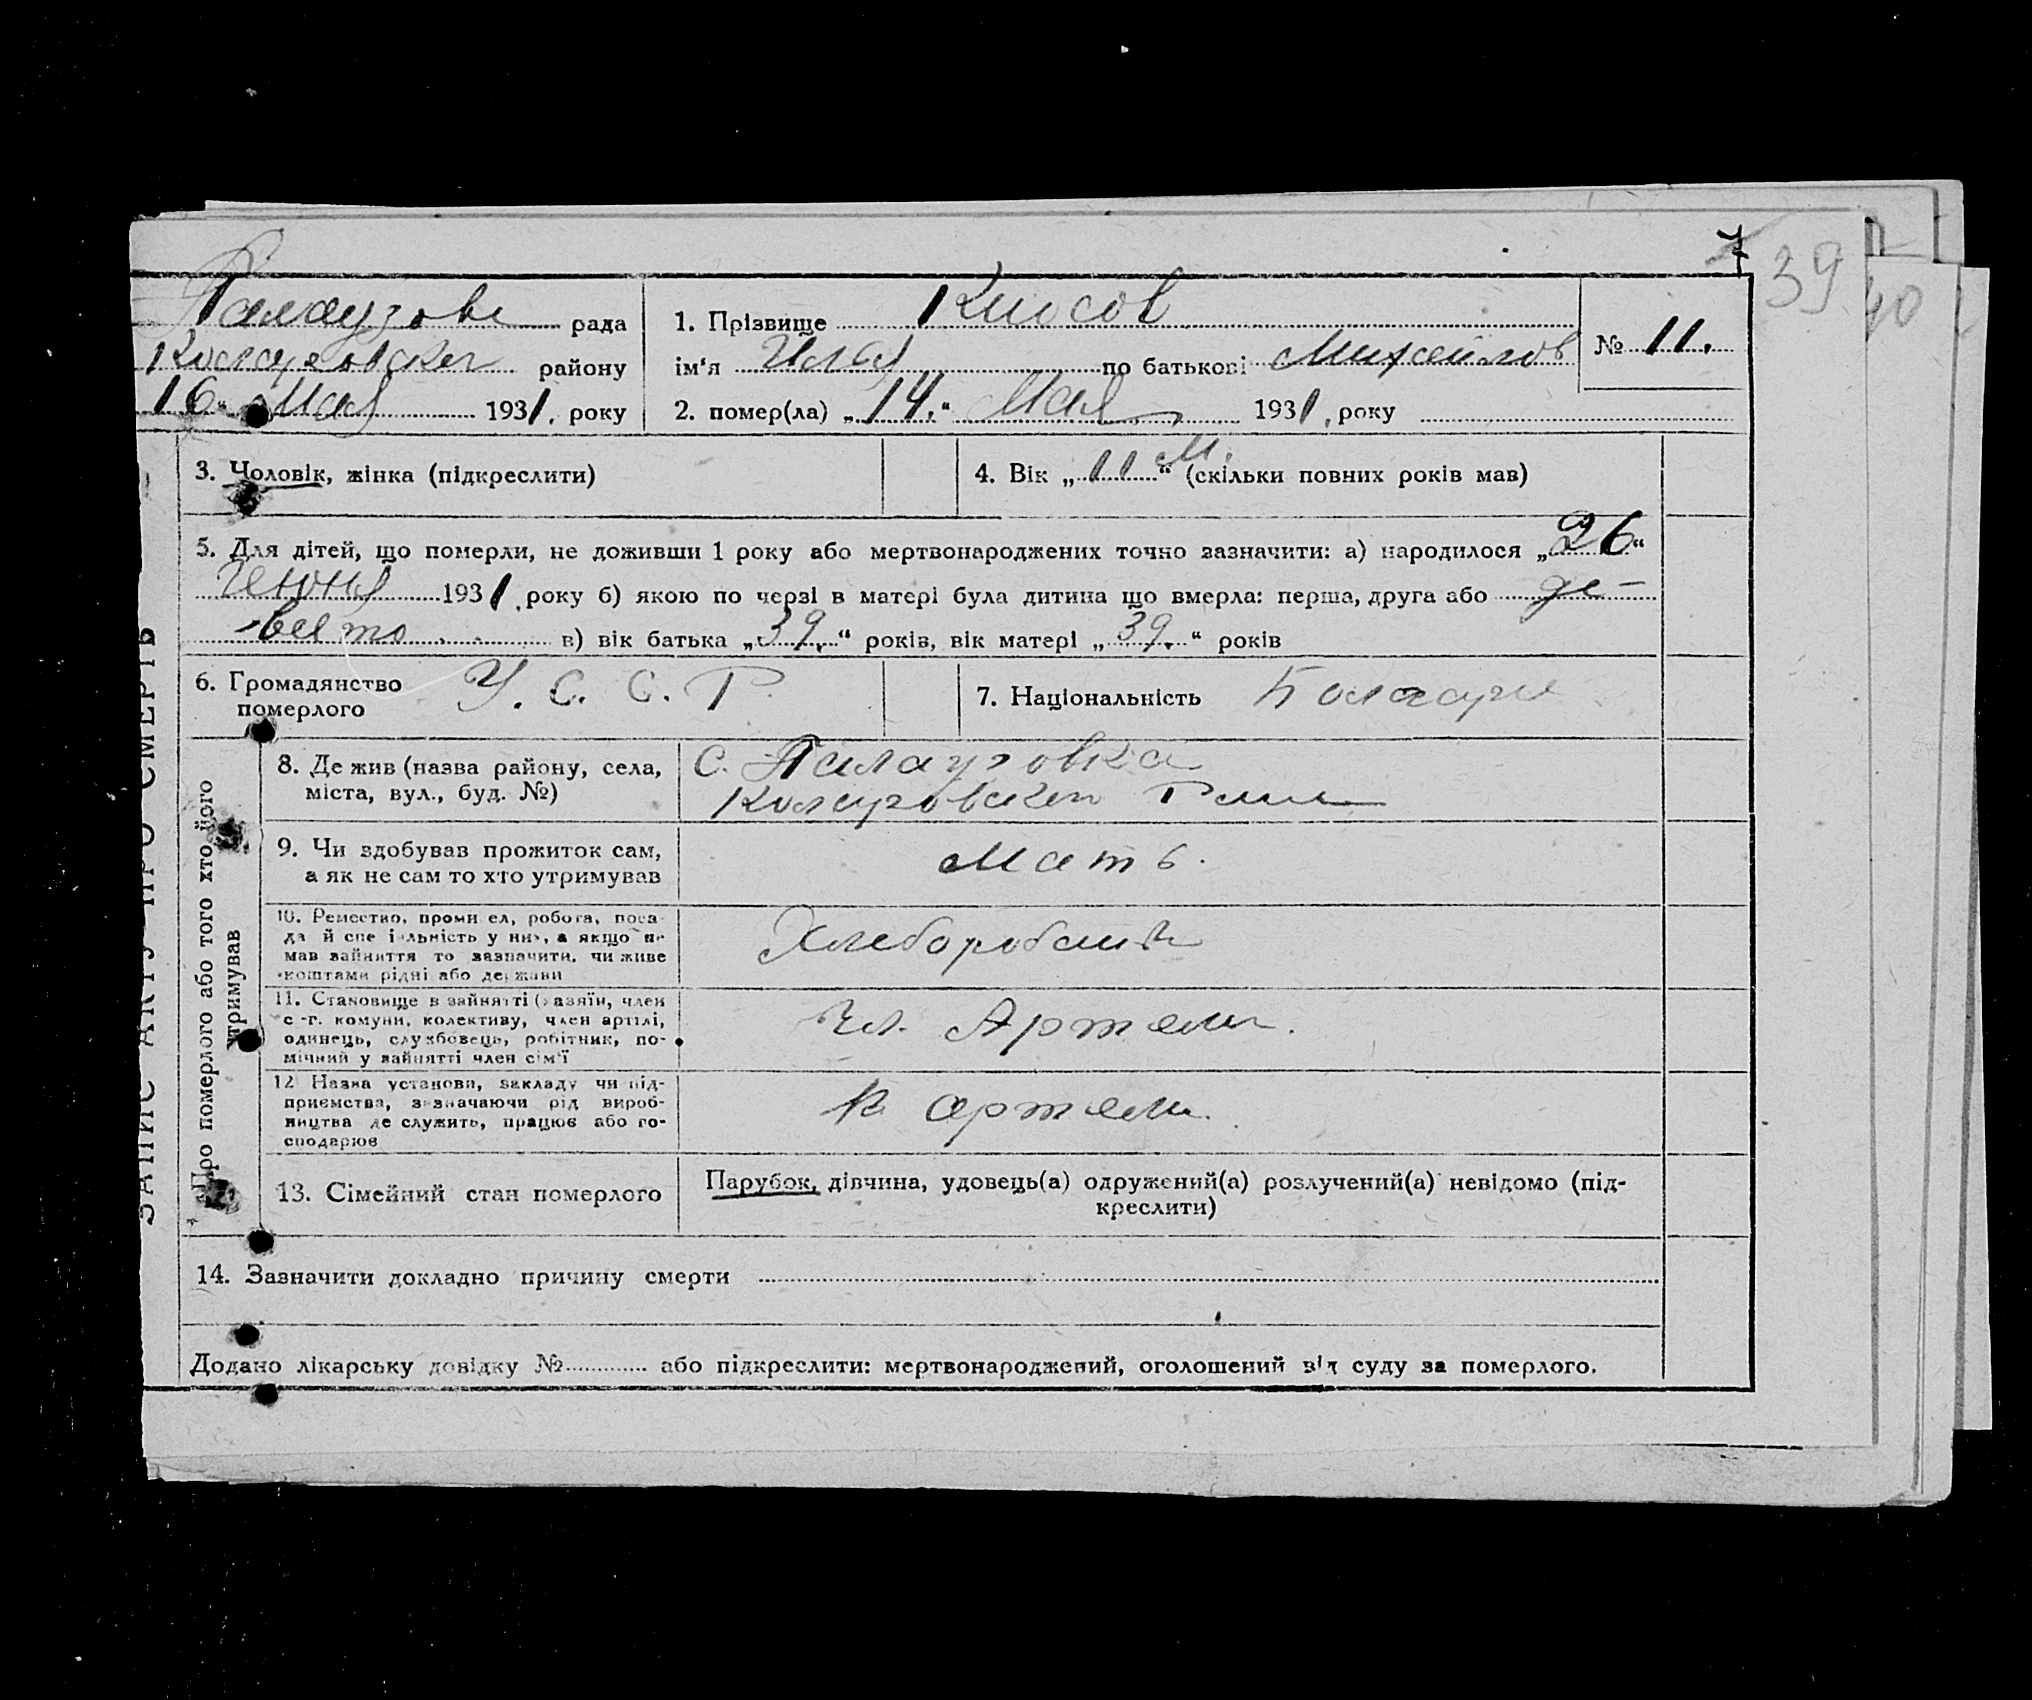 7
39
40
Палаузовс рада
Коларовского району
16 " Мая 1931. року
1. Прізвище Киосов
ім'я Илья по батькові Михайлов
№ 11.
2. помер(ла) „14.“ Мая 1931. року
ЗАПИС АКТУ ПРО СМЕРТЬ
3. Чоловік, жінка (підкреслити)
4. Вік „11 м.“ (скільки повних років мав)
5. Для дітей, що померли, не доживши 1 року або мертвонароджених точно зазначити: а) народилося „26“
Июня 1931. року б) якою по черзі в матері була дитина що вмерла: перша, друга або де-
-вято в) вік батька „39.“ років, вік матері „39.“ років
6. Громадянство
померлого
У. С. С. Р.
7. Національність
Про померлого або того хто його
утримував
8. Де жив (назва району, села,
міста, вул., буд. №)
с. Палаузовка
Коларовского
9. Чи здобував прожиток сам,
а як не сам то хто утримував
Мать.
10. Ремество, промисел, робота, поса-
да й спеціяльність у них, а якщо не
мав зайняття то зазначити, чи живе
коштами рідні або держави
11. Становище в зайнятті (хазяїн, член
с.-г. комуни, колективу, член артілі,
одинець, службовець, робітник, по-
мічний у зайнятті член сім'ї
Чл. Артели.
12 Назва установи, закладу чи під-
приємства, зазначаючи рід вироб-
ництва де служить, працює або го-
сподарює
в артели.
13. Сімейний стан померлого
Парубок, дівчина, удовець(а) одружений(а) розлучений(а) невідомо (під-
креслити)
14. Зазначити докладно причину смерти
Додано лікарську довідку № або підкреслити: мертвонароджений, оголошений від суду за померлого.